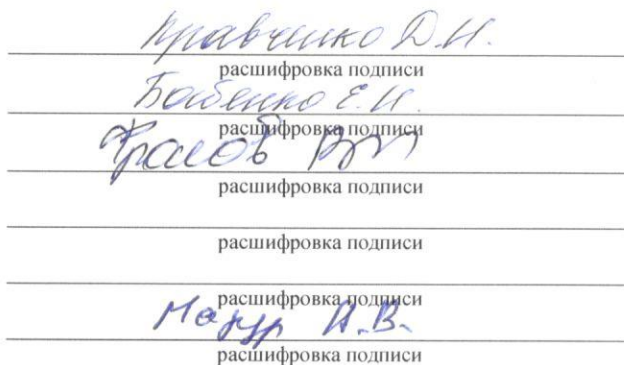 Кравченко Д.И.
расшифровка подписи
Бабенко Е.И.
расшифровка подписи
расшифровка подписи
расшифровка подписи
расшифровка подписи
Мазур А.В.
расшифровка подписи